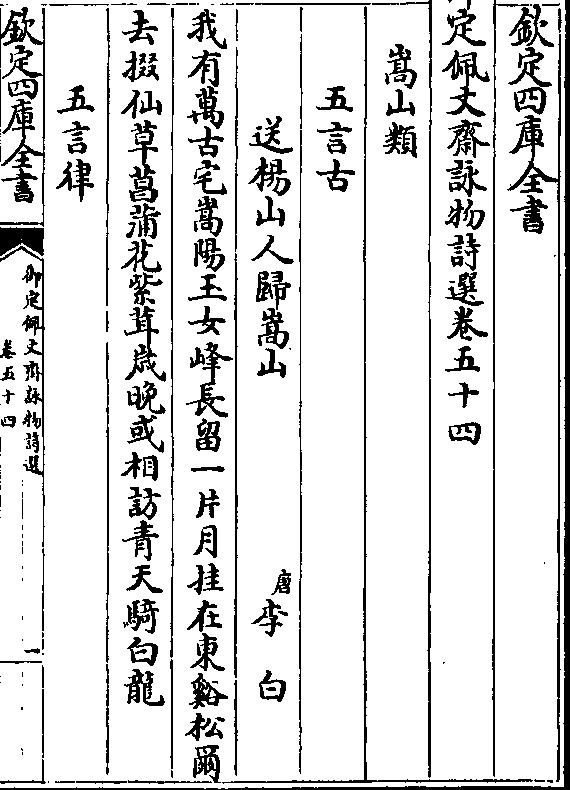 欽定四庫全書
定佩文齋詠物詩選卷五十四
嵩山類
五言古
送楊山人歸嵩山
唐李白
我有萬古宅嵩陽玉女峰長留一片月挂在東谿松爾
去掇仙草菖蒲花紫茸歳晚或相訪青天騎白龍
五言律
欽定四庫全書
御定佩文齋詠物詩選
卷五十四
一